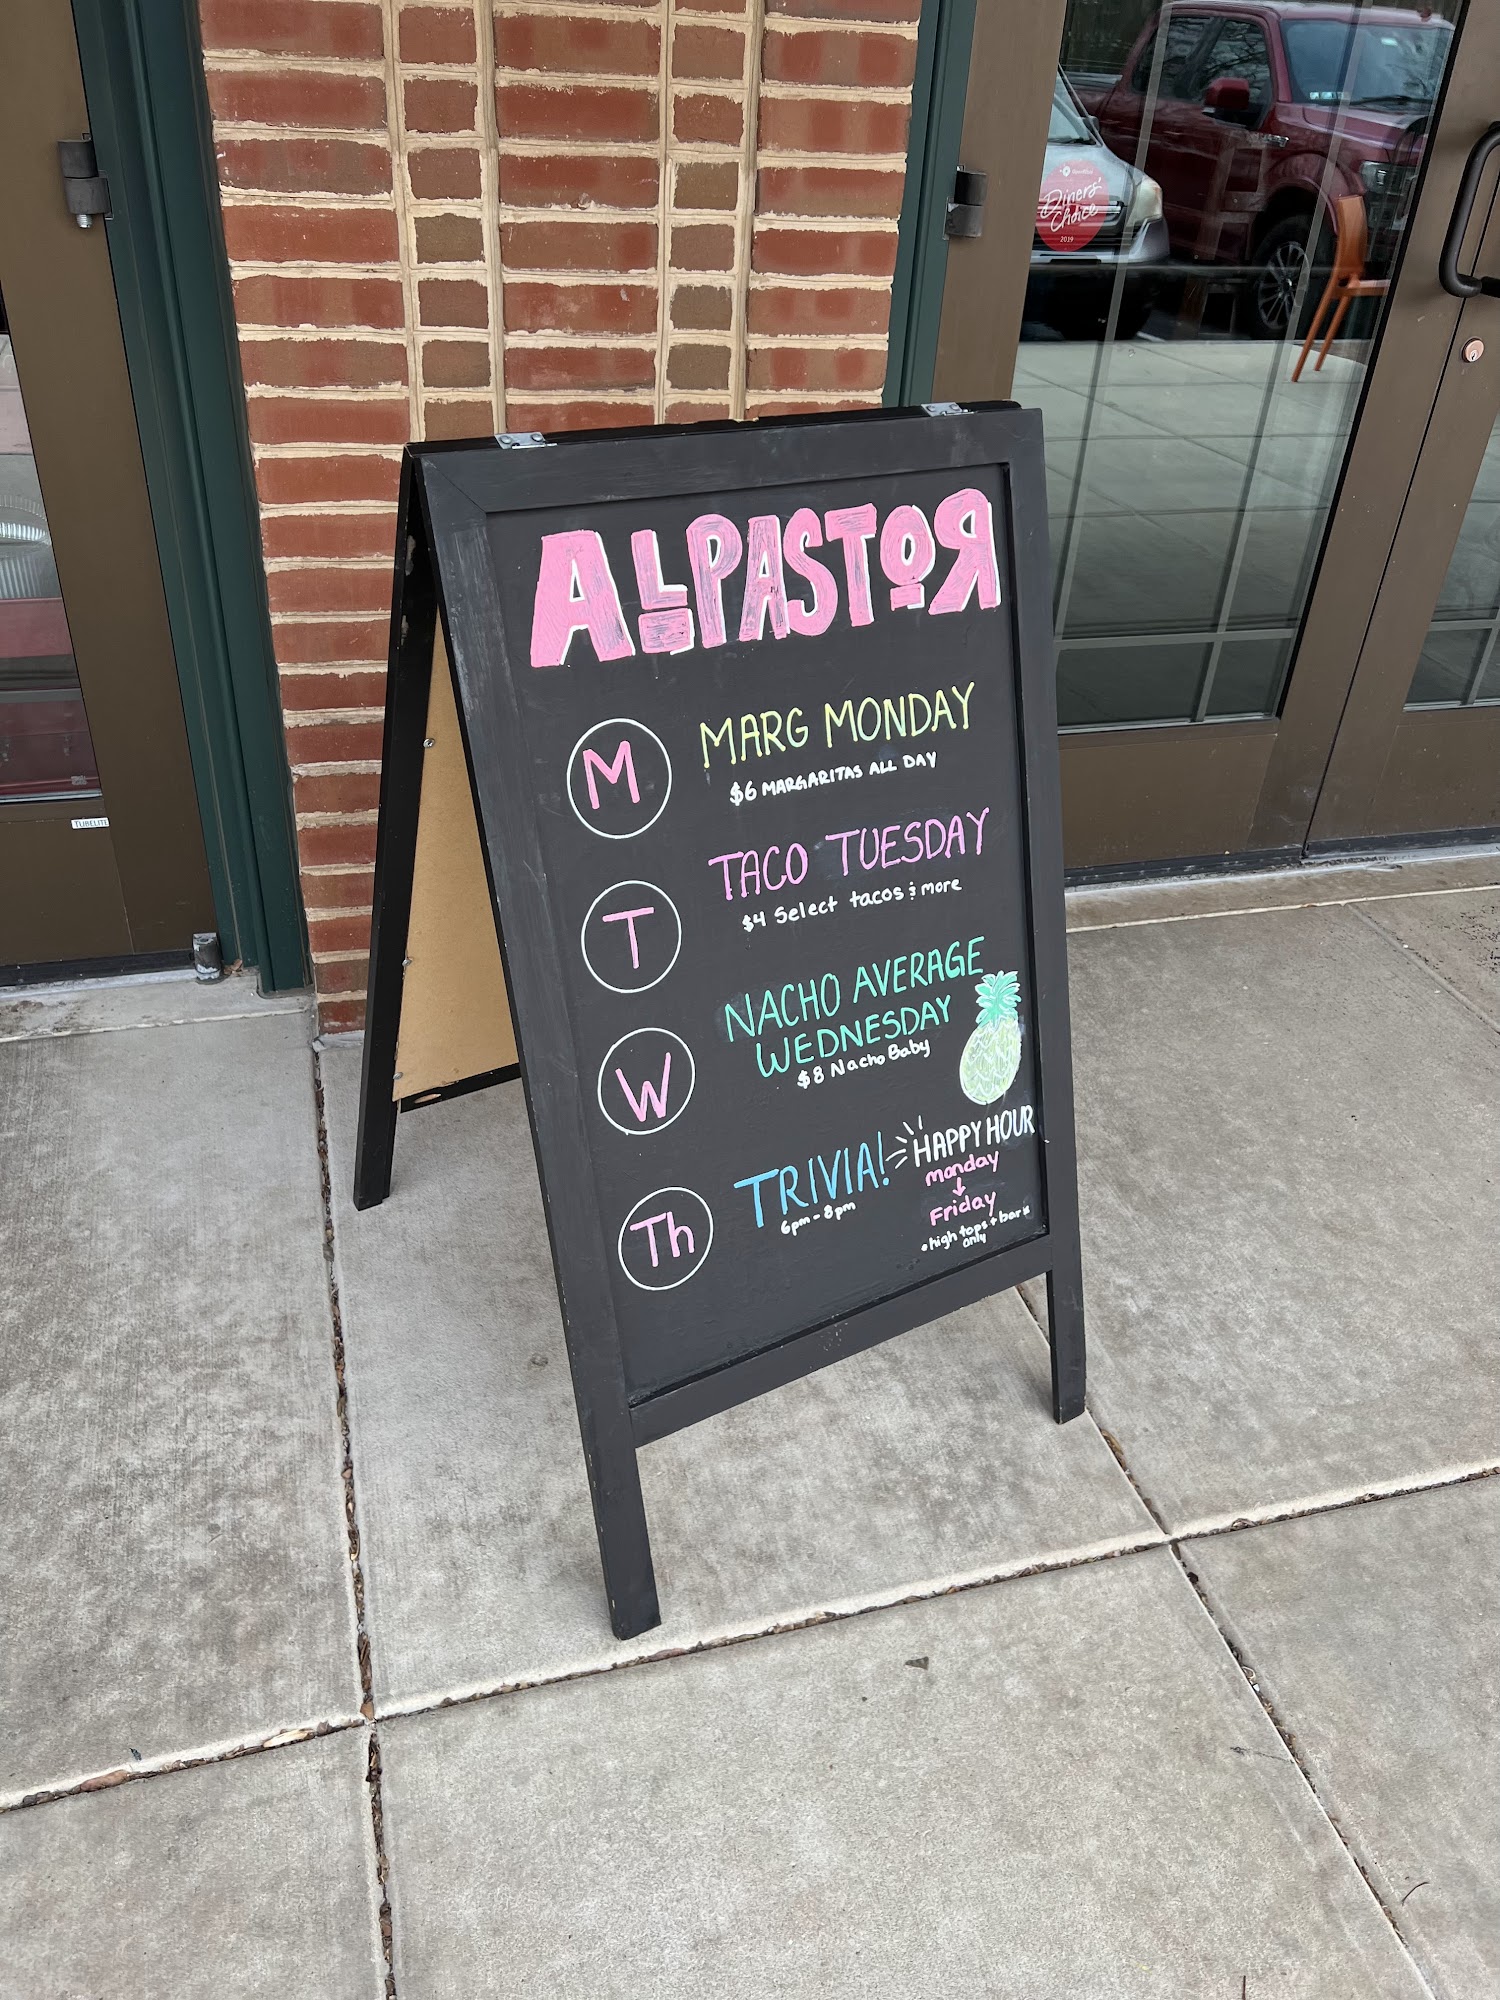 Diners'
Choice
2019
TUBELITE
AL PASTOR
M
MARG MONDAY
$6 MARGARITAS ALL DAY
T
TACO TUESDAY
$4 Select tacos & more
W
NACHO AVERAGE
WEDNESDAY
$8 Nacho Baby
Th
TRIVIA!
6pm - 8pm
HAPPY HOUR
monday
↓
Friday
*high tops + bar*
only